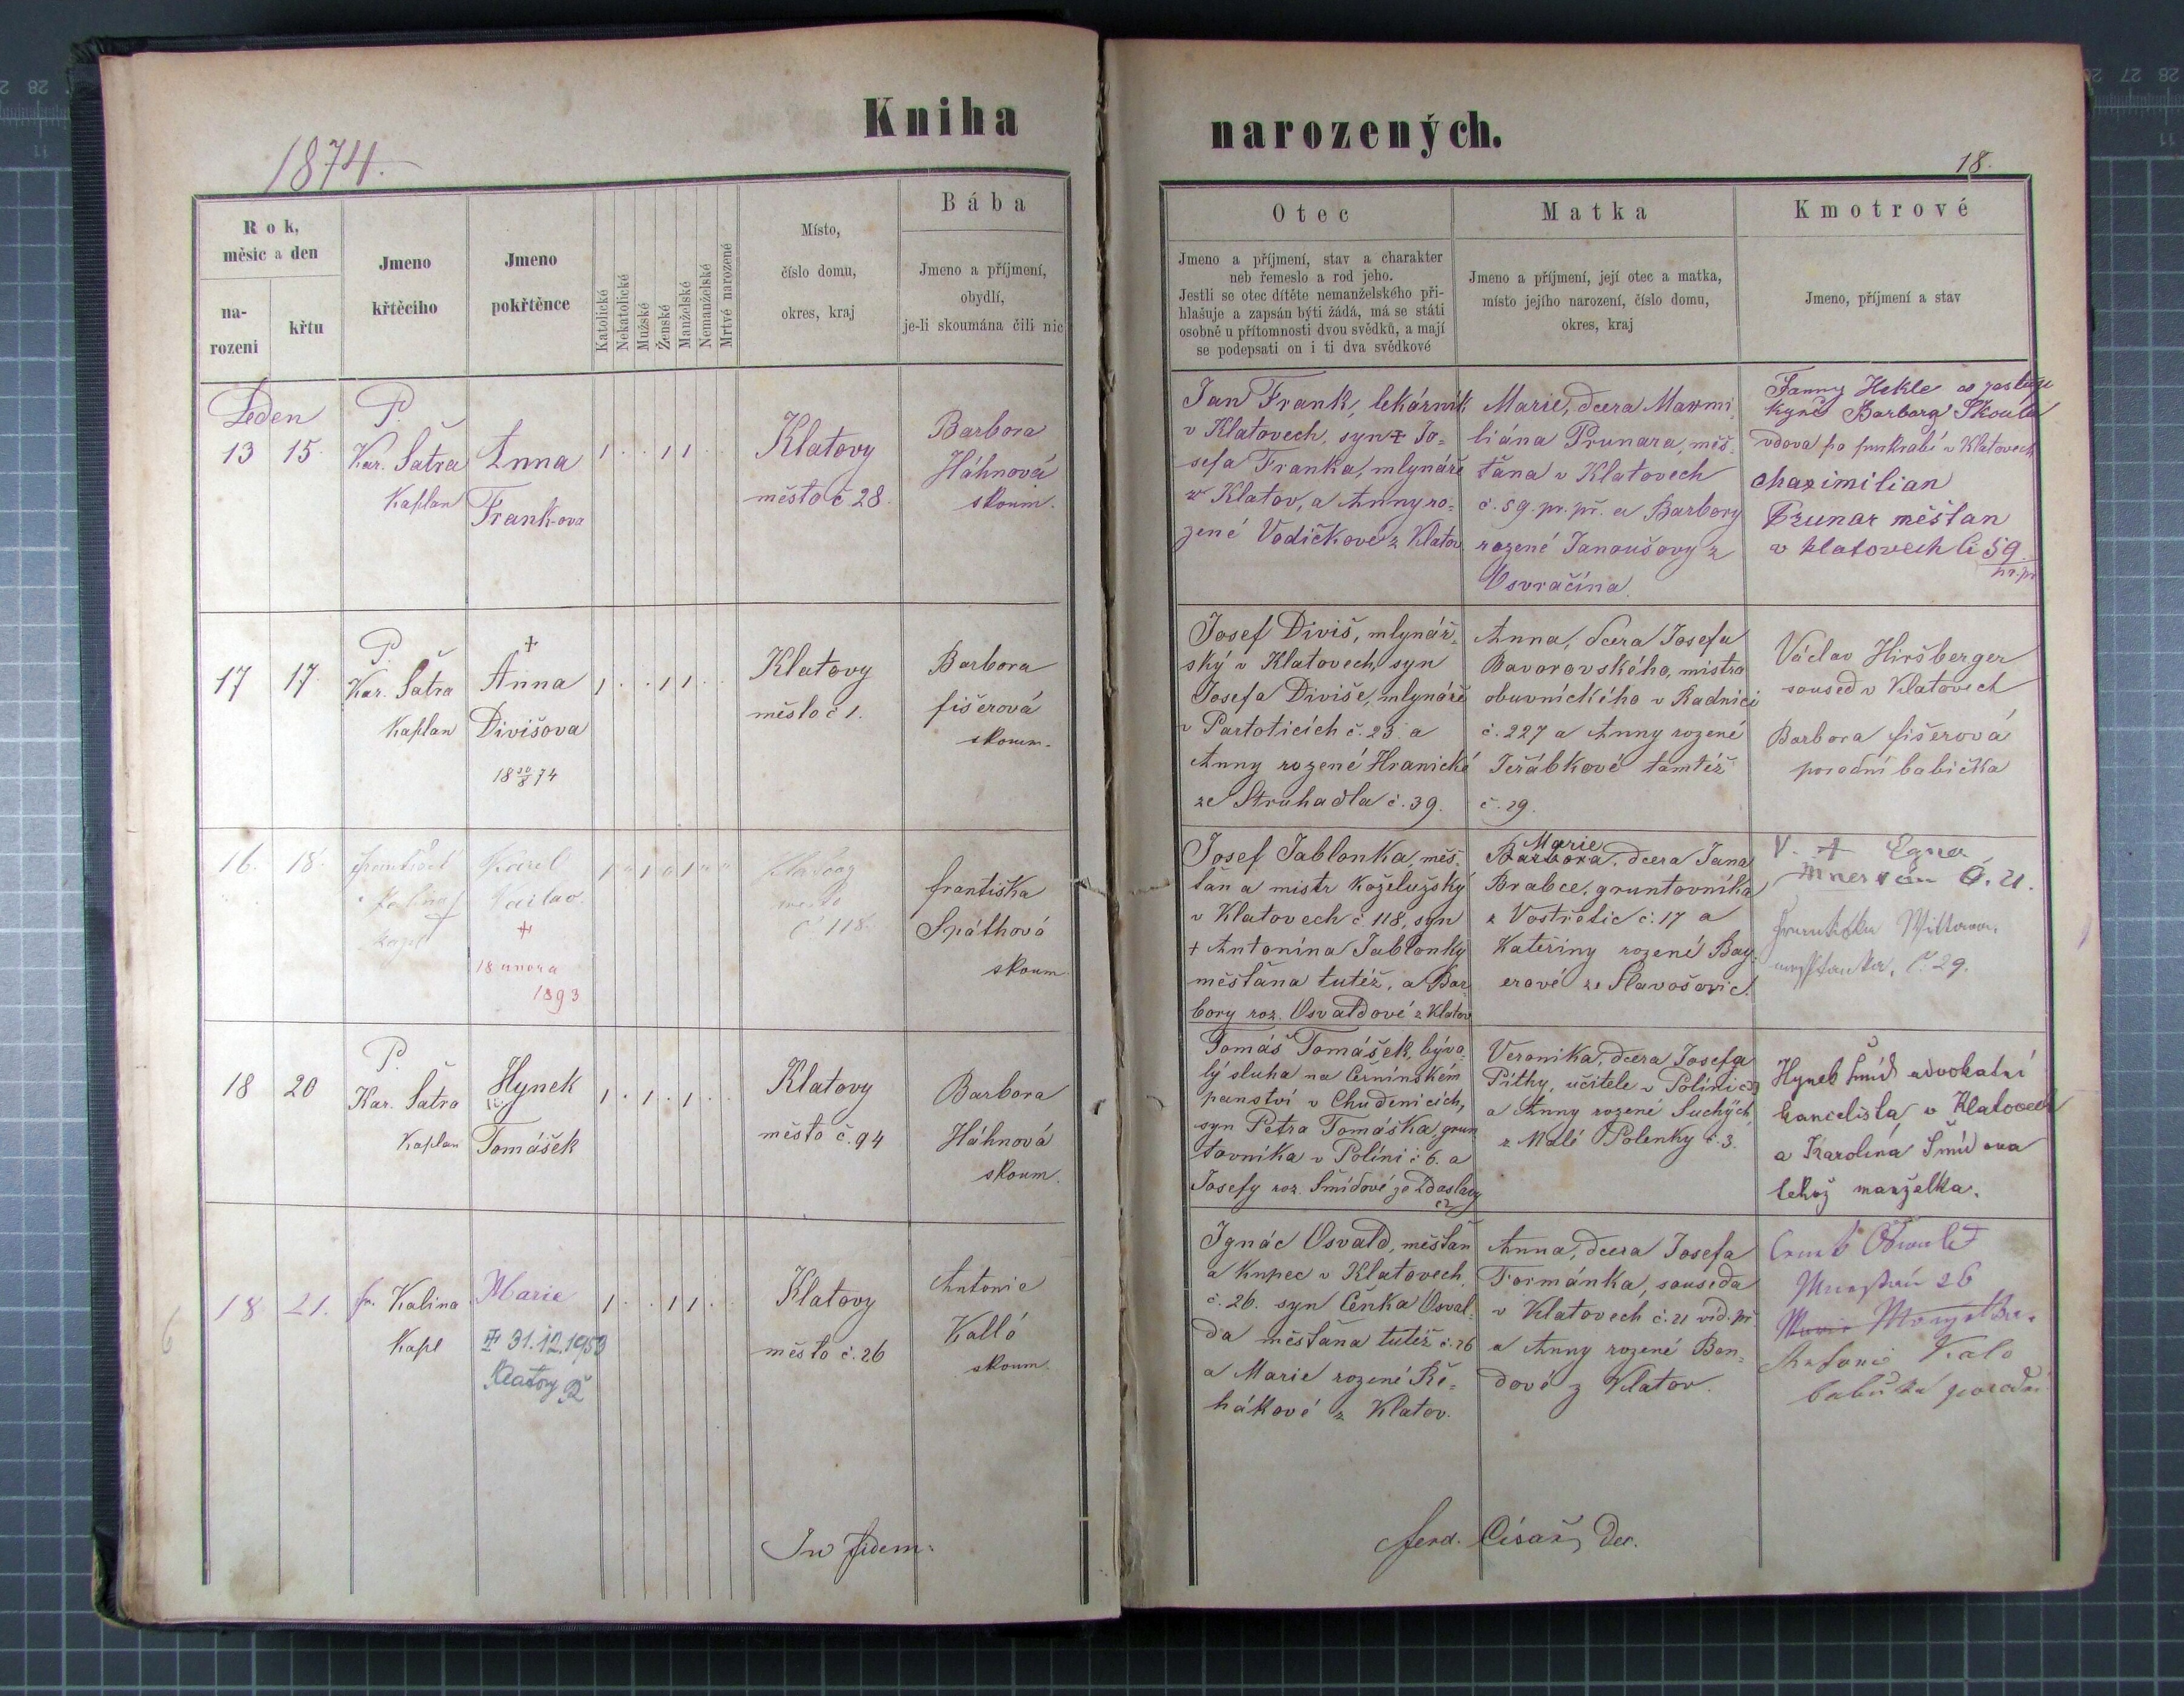 Kniha
narozených.
1874.
18.
Rok,
měsíc a den
na-
rozeni
křtu
Jmeno
křtěcího
Jmeno
pokřtěnce
Katolické
Nekatolické
Mužské
Ženské
Manželské
Nemanželské
Mrtvé narozené
Místo,
číslo domu,
okres, kraj
Bába
Jmeno a příjmení,
obydlí,
je-li skoumána čili nic
Otec
Jmeno a příjmení, stav a charakter
neb řemeslo a rod jeho.
Jestli se otec dítěte nemanželského při-
hlašuje a zapsán býti žádá, má se státi
osobně u přítomnosti dvou svědků, a mají
se podepsati on i ti dva svědkové
Matka
Jmeno a příjmení, její otec a matka,
místo jejího narození, číslo domu,
okres, kraj
Kmotrové
Jmeno, příjmení a stav
Leden
13 15
P.
Kar. Šatra
Kaplan
Anna
Frank-ova
1 . . 1 1 .
Klatovy
město č. 28.
Barbora
Háhnová
skoum.
Jan Frank, lekárník
v Klatovech, syn † Jo=
sefa Franka, mlynáře
z Klatov, a Anny ro=
zené Vodičkové z Klatov
Marie, dcera Maxmi
liána Prunara, měš-
ťana v Klatovech
č. 59. pr. př. a Barbory
rozené Janoušovy z
Osvračína.
Fanny Hekle
Barbora Škoula
vdova po purkrabí v Klatovech
Maximilian
Prunar měštan
v klatovech či 59
pr. pr
17 17.
P.
Kar. Šatra
Kaplan
†
Anna
Divišova
18 30/8 74
1 . . 1 1 . .
Klatovy
město č 1.
Barbora
fišerová
skoum.
Josef Diviš, mlynář-
ský v Klatovech, syn
Josefa Diviše, mlynáře
v Partoticích č. 23. a
Anny rozené Hranické
ze Struhadla č. 39.
Anna, dcera Josefa
Bavorovského, mistra
obuvnického v Radnici
č. 227 a Anny rozené
Jeřábkové tamtéž
č. 29.
Václav Hiršberger
soused v Klatovech
Barbora fišerová
porodní babička
16. 18.
František
Kalina
kapl
Karel
Vailav.
†
18 února
1893
Klatovy
město
č 118.
františka
Späthová
skoum.
Josef Jablonka, měš-
ťan a mistr koželužský
v Klatovech č. 118, syn
† Antonína Jablonky
měšťana tutéž, a Bar
bory roz. Osvaldové z Klatov
Marie
Barbora, dcera Jana
Brabce, gruntovníka
z Vostřetic č. 17 a
Kateřiny rozené Bay
erové ze Slavošovic.
č. 29.
18 20
P.
Kar. Šatra
Kaplan
Hynek
Tomášek
1 . 1 . 1 . .
Klatovy
město č. 94
Barbora
Háhnová
skoum.
Tomáš Tomášek, býva-
lý sluha na Černínském
panství v Chudenicích,
syn Petra Tomáška, grun
tovníka v Políni č 6. a
Josefy roz. Šmídové ze Zdaslavy
č 2
Veronika, dcera Josefa
Pithy, učitele v Políni č 3
a Anny rozené Suchých
z Malé Polenky č. 3.
Hynek Šmíd advokatní
kancelista v Klatovech
a Karolina Šmídova
tehož manželka.
18 21.
fr. Kalina
Kapl
Marie
† 31.12.1953
Klatovy
1 . . 1 1 .
Klatovy
město č. 26
Antonie
Kalló
skoum.
Ignác Osvald, měšťan
a kupec v Klatovech
č. 26. syn Čeňka Osval-
da měšťana tutéž č. 26
a Marie rozené Ře-
hákové z Klatov.
Anna, dcera Josefa
Formánka, souseda
v Klatovech č. 21 víd. př.
a Anny rozené Ben-
dové z Klatov.
26
Antonie Kalo
babička porodní
In fidem:
Ferd. Císař, Der.